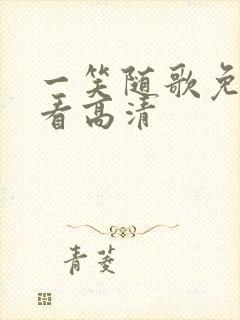 一笑随歌免
看高清
青菱